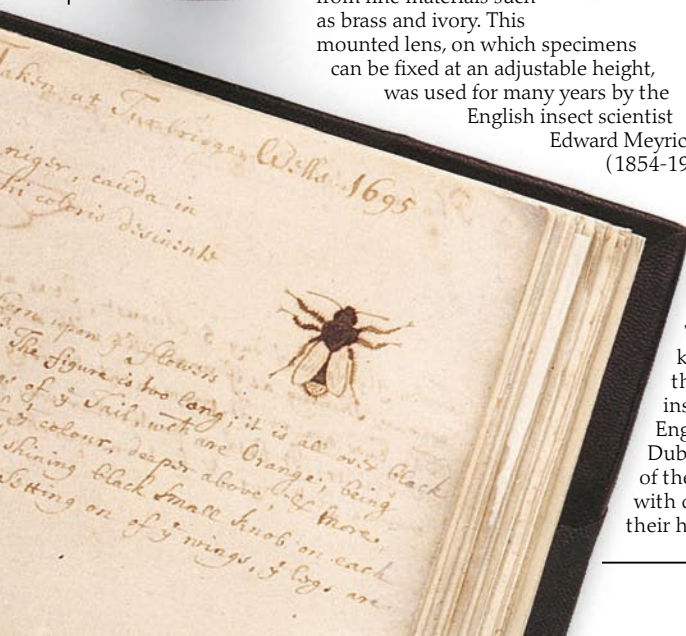 from fine materials such
as brass and ivory. This
mounted lens, on which specimens
can be fixed at an adjustable height,
was used for many years by the
English insect scientist
Edward Meyric
(1854-19
Taken at Wells. 1695
niger, cauda in
coloris desinente
upon yᵉ flowers
The figure is too long; it is all over black
of yᵉ Tail, wᶜʰ are Orange; being
yᵉ colour, deeper above,
shining black small knob on each
setting on of yᵉ wings, yᵉ legs are
T
k
th
ins
Eng
Dub
of the
with c
their h